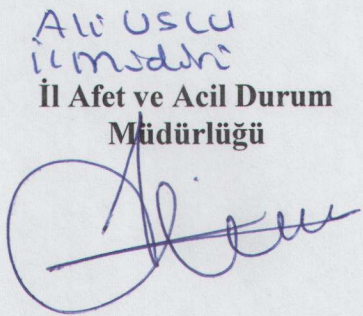 Ali USLU
il Müdürü
İl Afet ve Acil Durum
Müdürlüğü